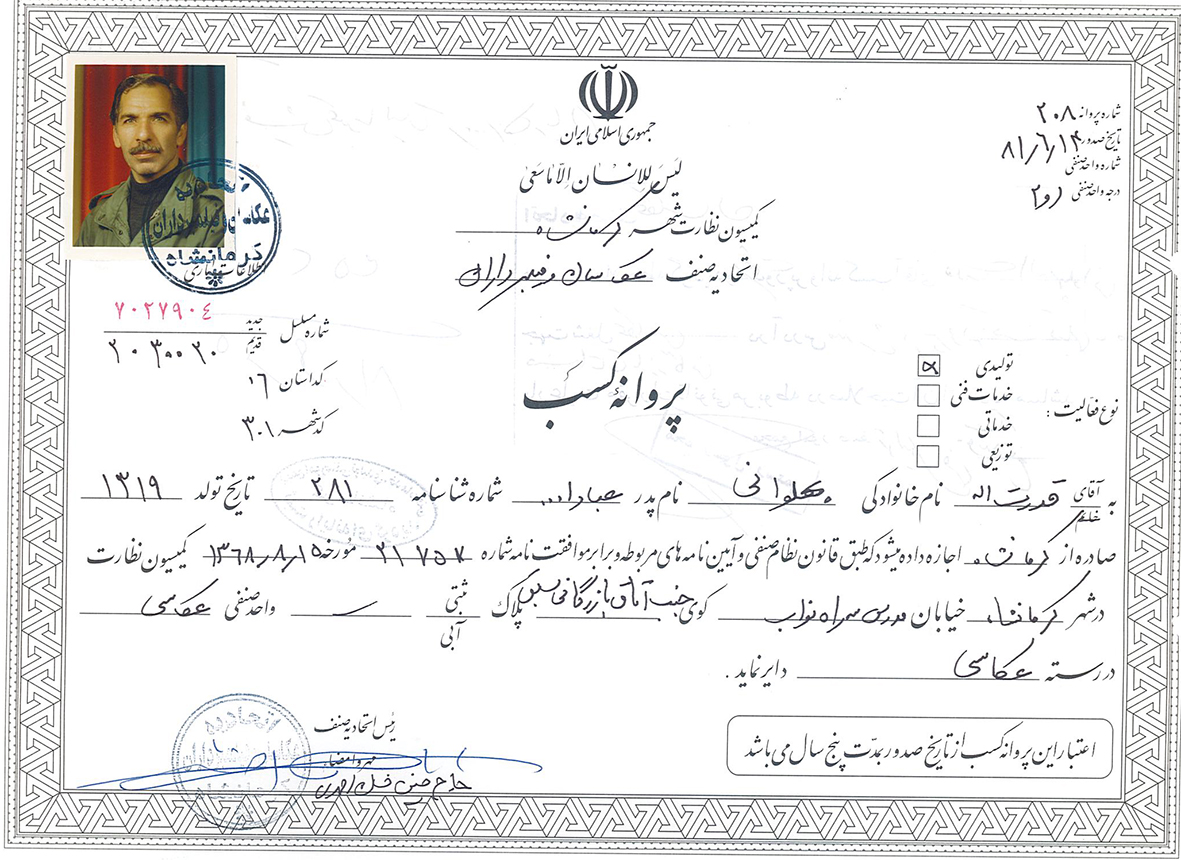 جمهوری اسلامی ایران
لَیسَ لِلاِنسانِ اِلّا ماسَعیٰ
شماره پروانه ۲۰۸
تاریخ صدور ۸۱/۶/۱۳
شماره واحد صنفی
درجه واحد صنفی ۱و۲
کمیسیون نظارت شهر کرمانشاه
اتحادیه صنف عکاسان و فیلمبرداران
اتحادیه
عکاسان و فیلمبرداران
کرمانشاه
شماره مسلسل جدید ۷۰۲۷۹۰٤
قدیم ۲۰۳۰۰۲۰
کد استان ۱۶
کد شهر ۳۰۱
پروانۀ کسب
نوع فعالیت :
تولیدی
خدمات فنی
خدماتی
توزیعی
به آقای خانم قدرت اله نام خانوادگی پهلوانی نام پدر شماره شناسنامه ۲۸۱ تاریخ تولد ۱۳۱۹
صادره از کرمانشاه اجازه داده میشود که طبق قانون نظام صنفی و آیین نامه های مربوطه و برابر موافقت نامه شماره ۲۱۷۵۷ مورخه ۱۳۶۸/۸/۱۵ کمیسیون نظارت
در شهر کرمانشاه خیابان مدرس سه راه نواب کوی جنب اتاق بازرگانی پلاک ثبتی آبی واحد صنفی عکاسی
در رسته عکاسی دایر نماید .
رئیس اتحادیه صنف
مهر و امضاء
اعتبار این پروانه کسب از تاریخ صدور بمدّت پنج سال می باشد